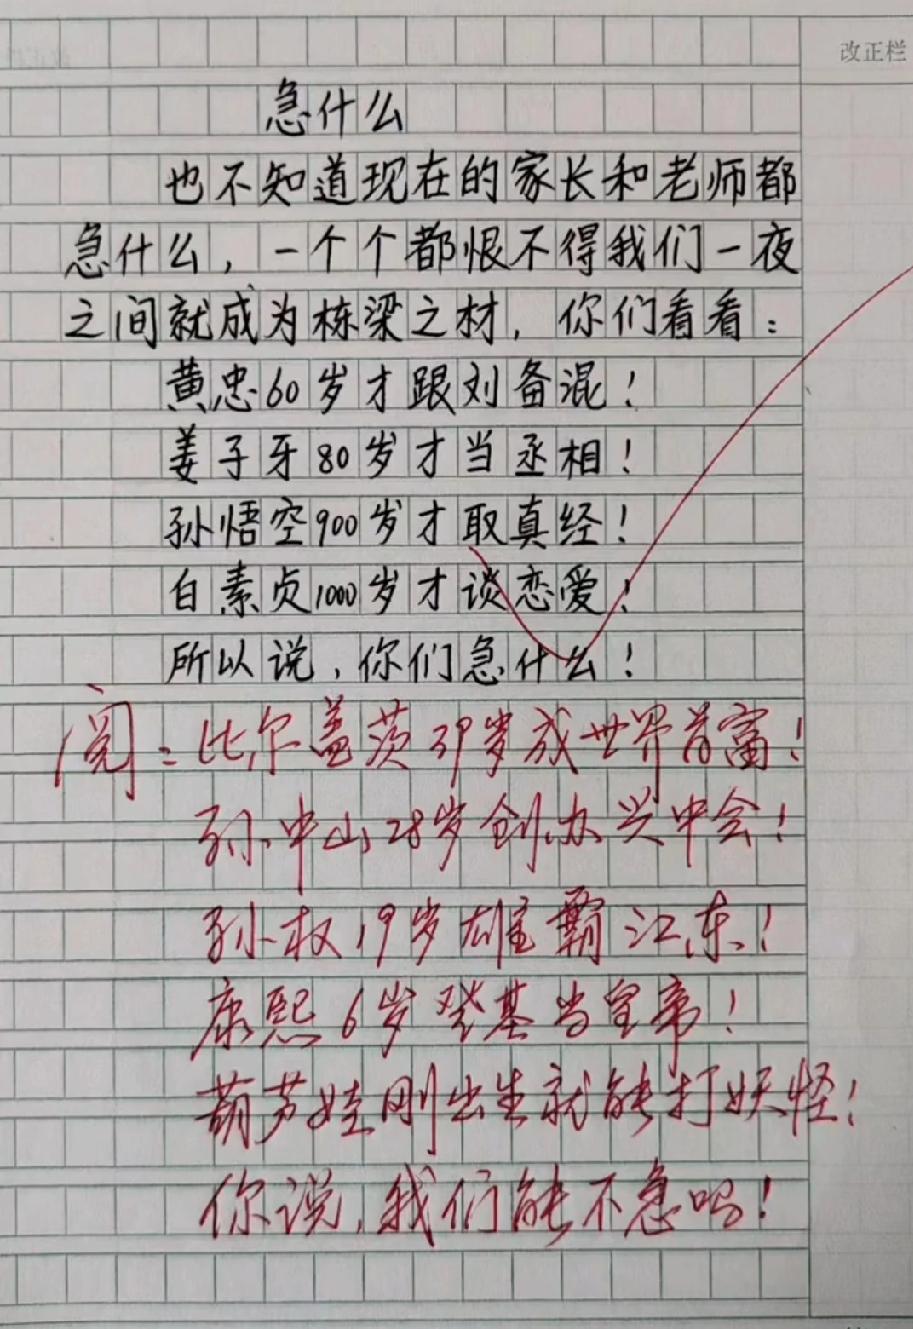 改正栏
急什么
也不知道现在的家长和老师都
急什么，一个个都恨不得我们一夜
之间就成为栋梁之材，你们看看：
黄忠60岁才跟刘备混！
姜子牙80岁才当丞相！
孙悟空900岁才取真经！
白素贞1000岁才谈恋爱！
所以说，你们急什么！
阅：比尔盖茨39岁成世界首富！
孙中山28岁创办兴中会！
孙权19岁雄霸江东！
康熙6岁登基当皇帝！
葫芦娃刚出生就能打妖怪！
你说，我们能不急吗！